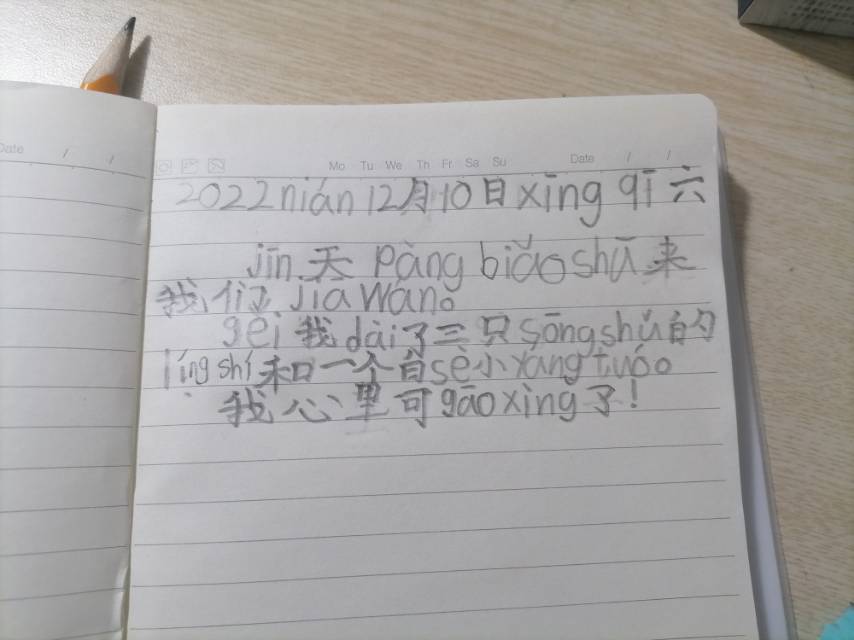 Date / /
Mo Tu We Th Fr Sa Su Date / /
2022nián12月10日xīng qī六
jīn天 pàng biǎo shū来
我们 jiā wán。
gěi我dài了三只sōng shǔ的
líng shí和一个白sè小yáng tuó。
我心里可gāo xìng了!